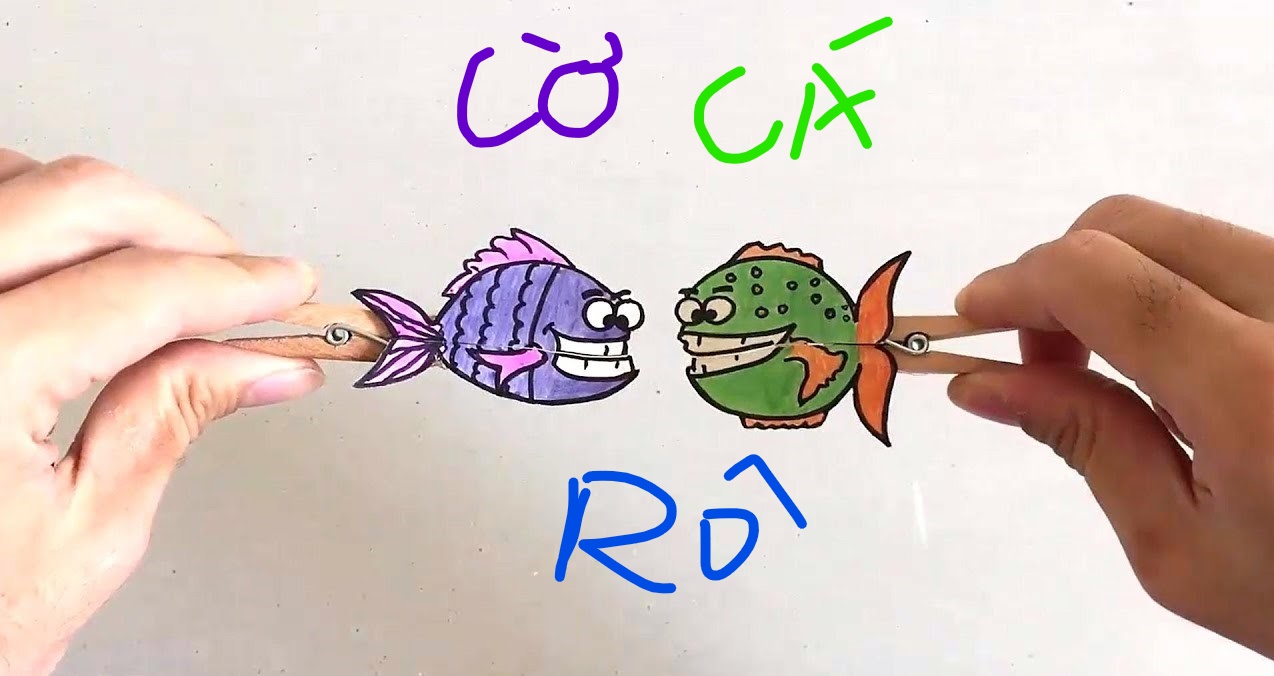 CỜ CÁ
RÔ